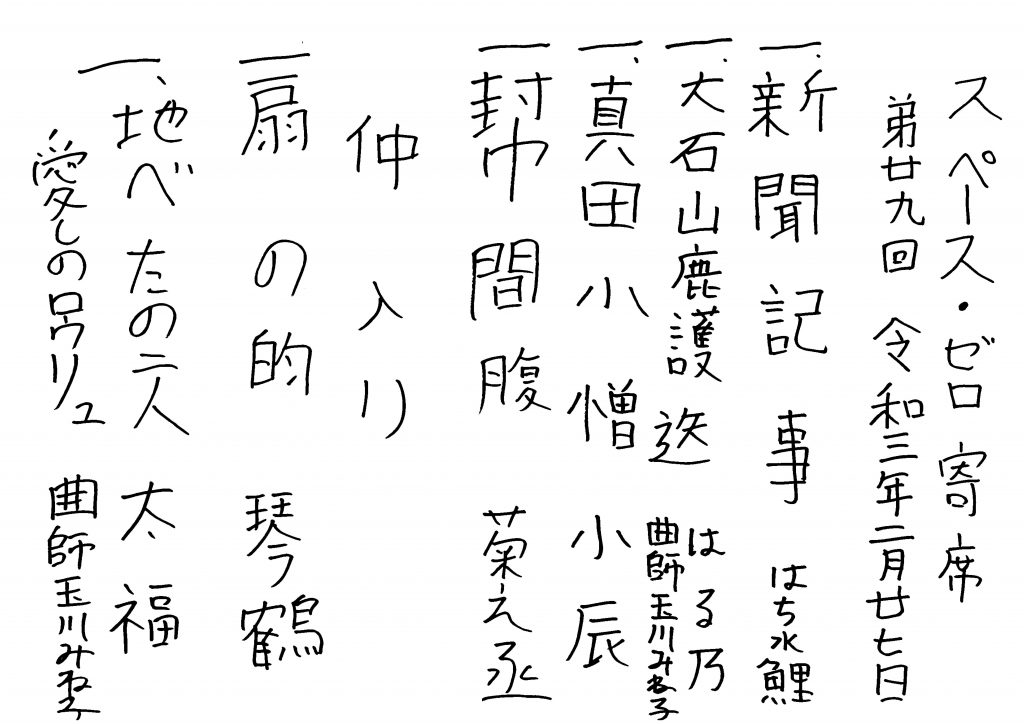 スペース・ゼロ寄席
第廿九回 令和三年二月廿七日
一、新聞記事 はち水鯉
一、大石山鹿護送 はる乃
曲師 玉川みね子
一、真田小僧 小辰
一、幇間腹 菊之丞
仲入り
一、扇の的 琴鶴
一、地べたの二人 太福
愛しのロウリュ
曲師 玉川みね子